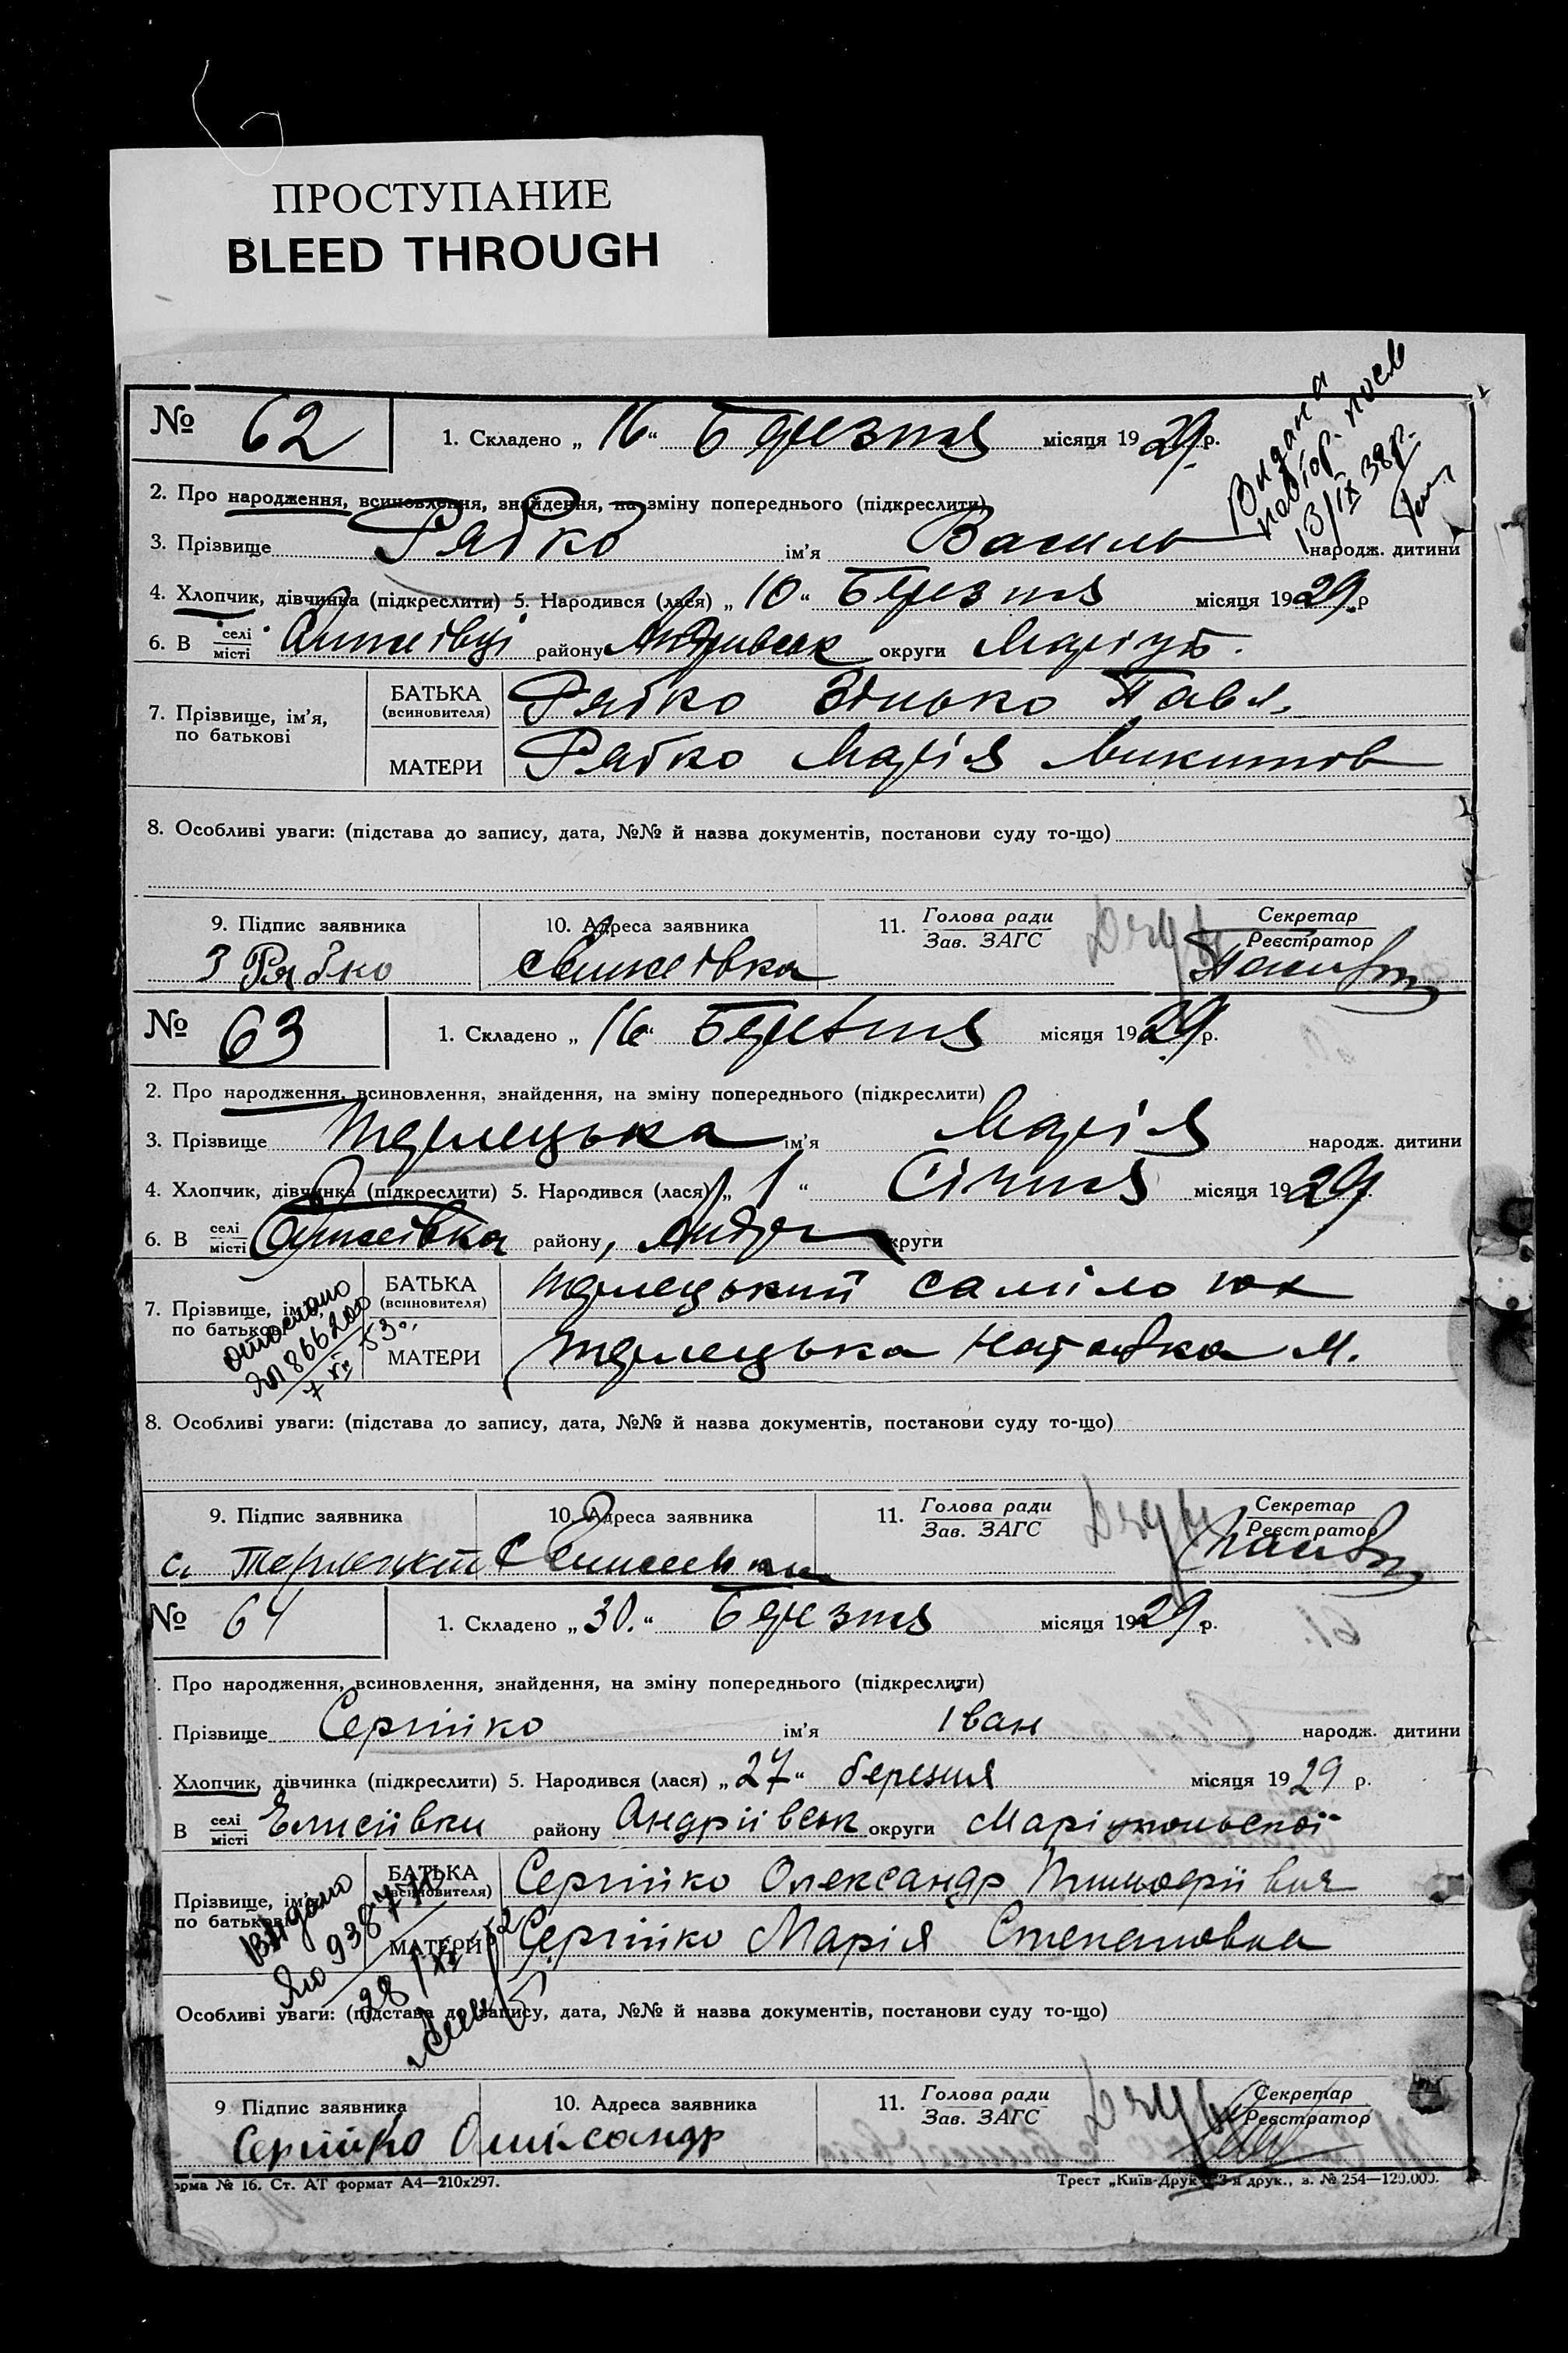 ПРОСТУПАНИЕ
BLEED THROUGH
№ 62 1. Складено „ 16 “ Березня місяця 1929 р.
Видана повтор. 13/IX 38р.
2. Про народження, всиновлення, знайдення, на зміну попереднього (підкреслити)
3. Прізвище Рябко ім’я Василь народж. дитини
4. Хлопчик, дівчинка (підкреслити) 5. Народився (лася) „ 10 “ Березня місяця 1929 р
6. В селі місті району округи Маріуп.
7. Прізвище, ім’я, по батькові
БАТЬКА (всиновителя) Рябко Зінько Павл.
МАТЕРИ Рябко Марія Микитов
8. Особливі уваги: (підстава до запису, дата, №№ й назва документів, постанови суду то-що)
9. Підпис заявника 10. Адреса заявника 11. Голова ради Зав. ЗАГС Секретар Реєстратор
З Рябко
№ 63 1. Складено „ 16 “ Березня місяця 1929 р.
2. Про народження, всиновлення, знайдення, на зміну попереднього (підкреслити)
3. Прізвище Терлецька ім’я Марія народж. дитини
4. Хлопчик, дівчинка (підкреслити) 5. Народився (лася) „ 1 “ Січня місяця 1929
6. В селі місті району, Андр округи
7. Прізвище, ім’я, по батькові
БАТЬКА (всиновителя) Терлецький Саміло
МАТЕРИ Терлецька М.
8. Особливі уваги: (підстава до запису, дата, №№ й назва документів, постанови суду то-що)
9. Підпис заявника 10. Адреса заявника 11. Голова ради Зав. ЗАГС Секретар Реєстратор
с. Терлецкий
№ 64 1. Складено „ 30. “ Березня місяця 1929 р.
. Про народження, всиновлення, знайдення, на зміну попереднього (підкреслити)
. Прізвище Сергійко ім’я Іван народж. дитини
. Хлопчик, дівчинка (підкреслити) 5. Народився (лася) „ 27 “ березня місяця 1929 р.
В селі місті Елисіївки району Андріївськ округи Маріюпольської
Прізвище, ім’я, по батькові
БАТЬКА (всиновителя) Сергійко Олександр
МАТЕРИ Сергійко Марія Степановна
Видано
Особливі уваги: (підстава до запису, дата, №№ й назва документів, постанови суду то-що)
9 Підпис заявника 10. Адреса заявника 11. Голова ради Зав. ЗАГС Секретар Реєстратор
Сергійко Олександр
орма № 16. Ст. АТ формат А4—210х297. Трест „Київ-Друк“ 3-я друк., з. № 254—120.000.